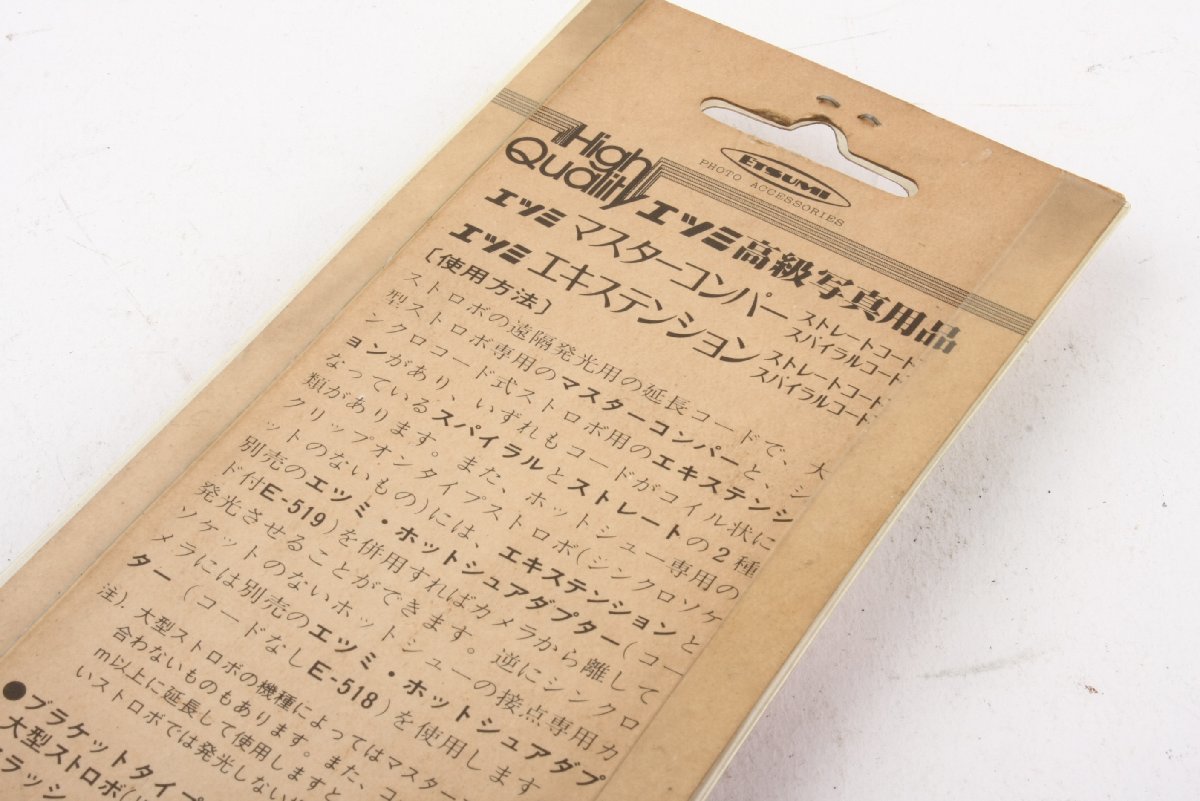 ETSUMI
PHOTO ACCESSORIES
High
Quality
エツミ高級写真用品
エツミ マスターコンパー ストレートコード
スパイラルコード
エツミ エキステンション ストレートコード
スパイラルコード
〔使用方法〕
ストロボの遠隔発光用の延長コードで、大
型ストロボ専用のマスターコンパーと、シ
ンクロコード式ストロボ用のエキステンシ
ョンがあり、いずれもコードがコイル状に
なっているスパイラルとストレートの2種
類があります。また、ホットシュー専用の
クリップオンタイプストロボ(シンクロソケ
ットのないもの)には、エキステンションと
別売のエツミ・ホットシュアダプター(コー
ド付E-519)を併用すればカメラから離して
発光させることができます。逆にシンクロ
ソケットのないホットシューの接点専用カ
メラには別売のエツミ・ホットシュアダプ
ター(コードなしE-518)を使用します
注).大型ストロボの機種によってはマスター
合わないものもあります。また、コ
m以上に延長して使用しますと
いストロボでは発光しない
●ブラケットタイプ
大型ストロボ
ラッシ